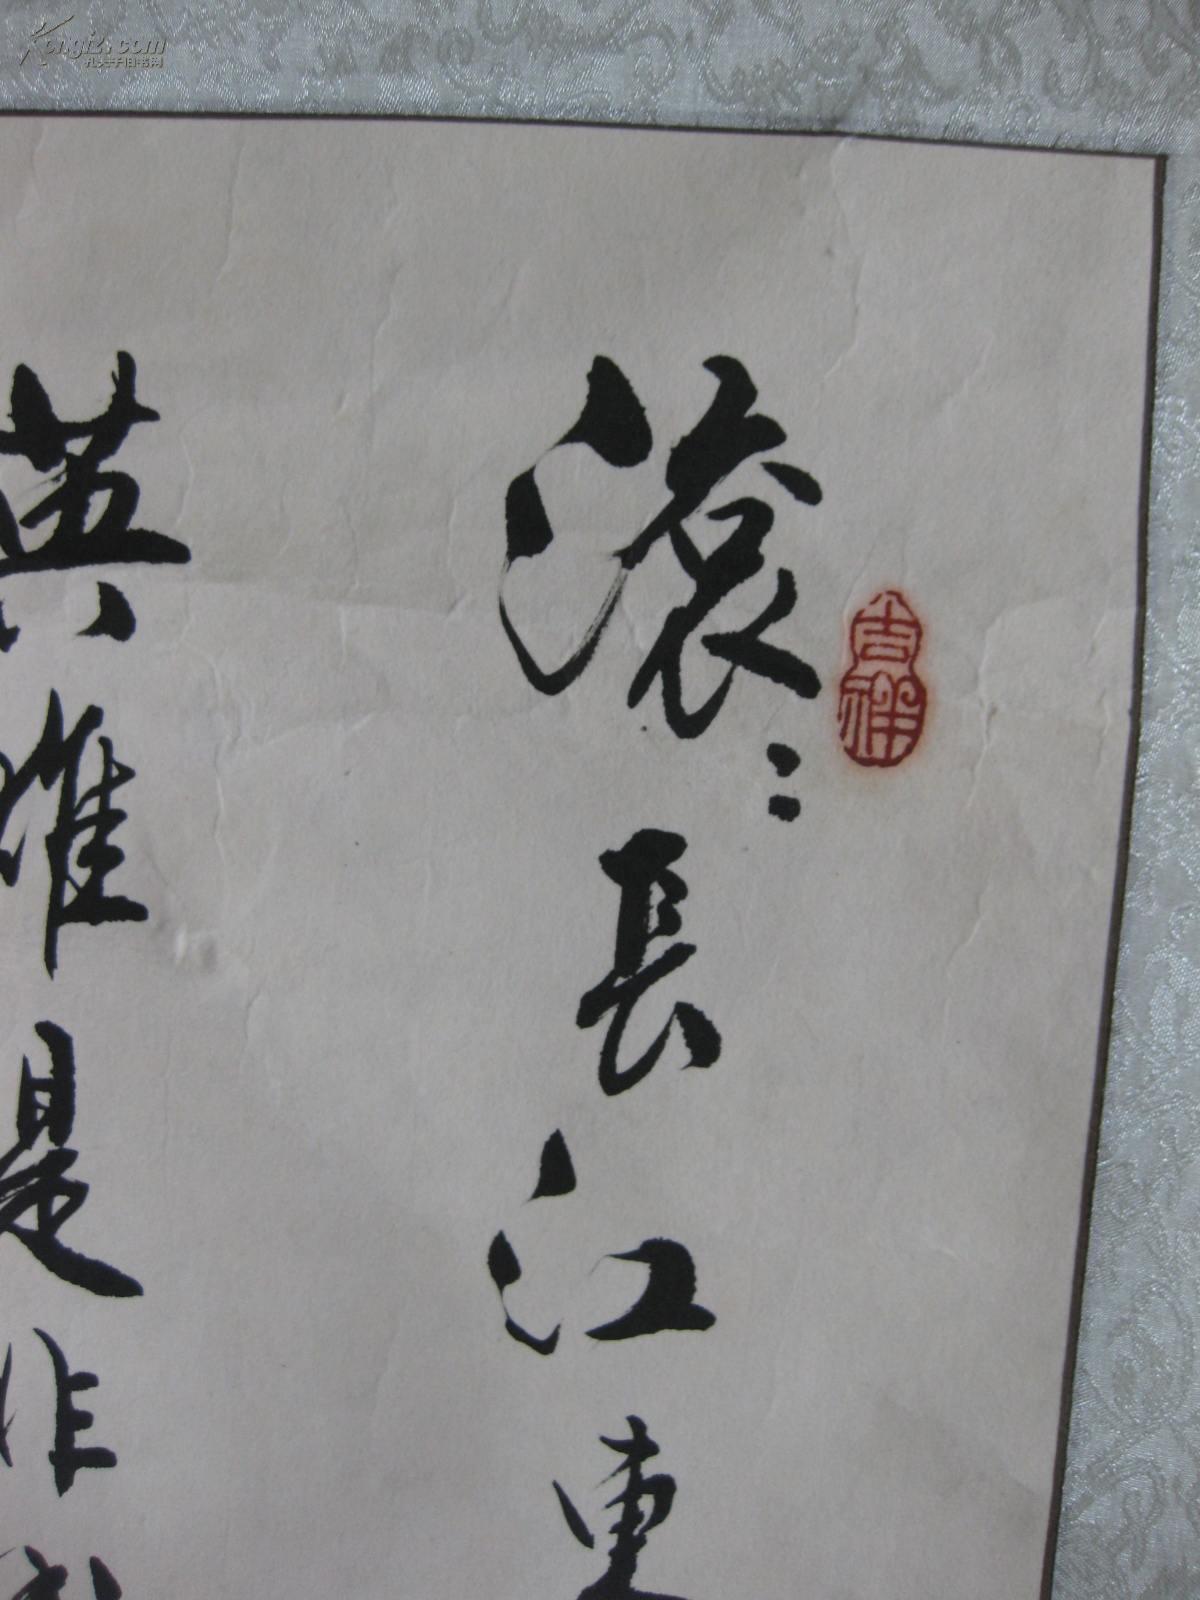 滚〻長江東
英雄是非成
吉祥
Kongfz.com
孔夫子旧书网